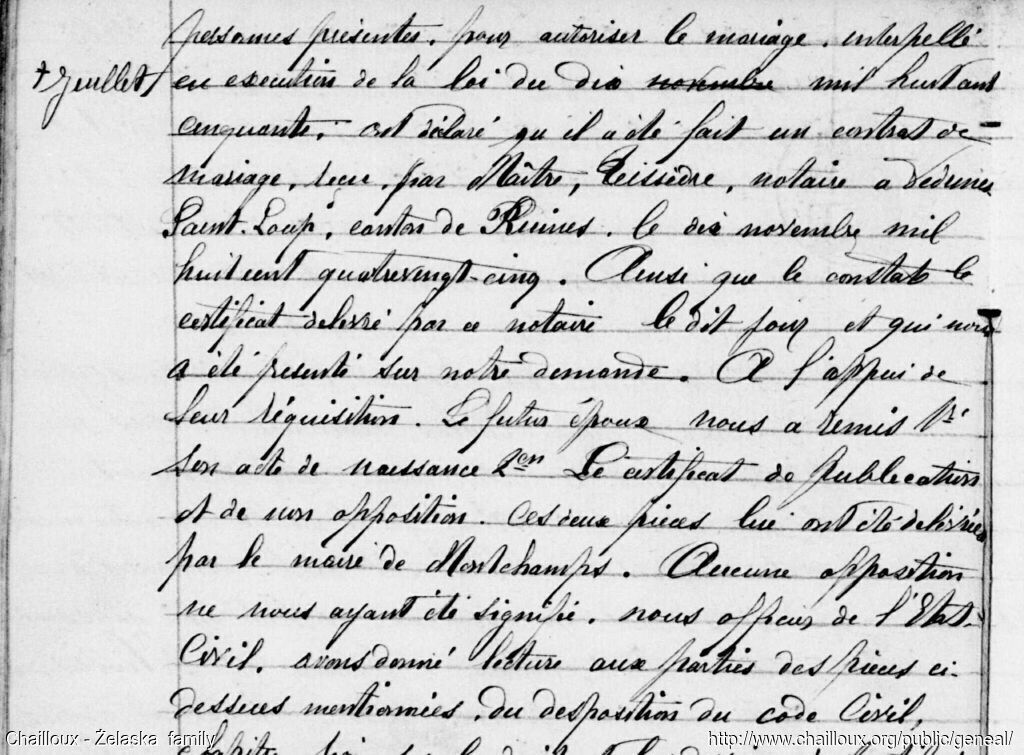 personnes présentes, pour autoriser le mariage, interpellé
+ Juillet / en execution de la loi du dix novembre mil huit cent
cinquante, ont déclaré qu'il a été fait un contrat de
mariage, reçu, par Maître, Teissèdre, notaire a Vedrines
Saint-Loup, canton de Ruines, le dix novembre mil
huit cent quatrevingt-cinq. Ainsi que le constate le
certificat délivré par ce notaire le dit jour et qui nous
a été présenté sur notre demande. A l'appui de
leur réquisition. Le futur époux nous a remis 1r
son acte de naissance 2en Le certificat de publication
et de non opposition. Ces deux pièces lui ont été délivrées
par le maire de Montchamps. Aucune opposition
ne nous ayant été signifié, nous officier de l'Etat-
Civil, avons donné lecture aux parties des pièces ci-
dessus mentionnées, du desposition du code Civil,
Chailloux - Żelaska family
http://www.chailloux.org/public/geneal/